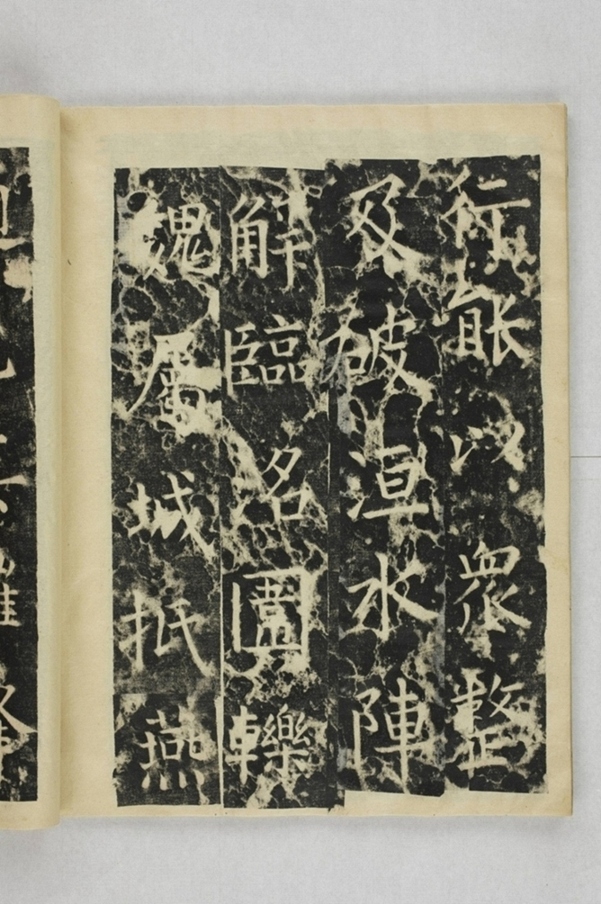 行能以衆整
及破洹水陣
解臨洺圍轢
魏屬城抵燕